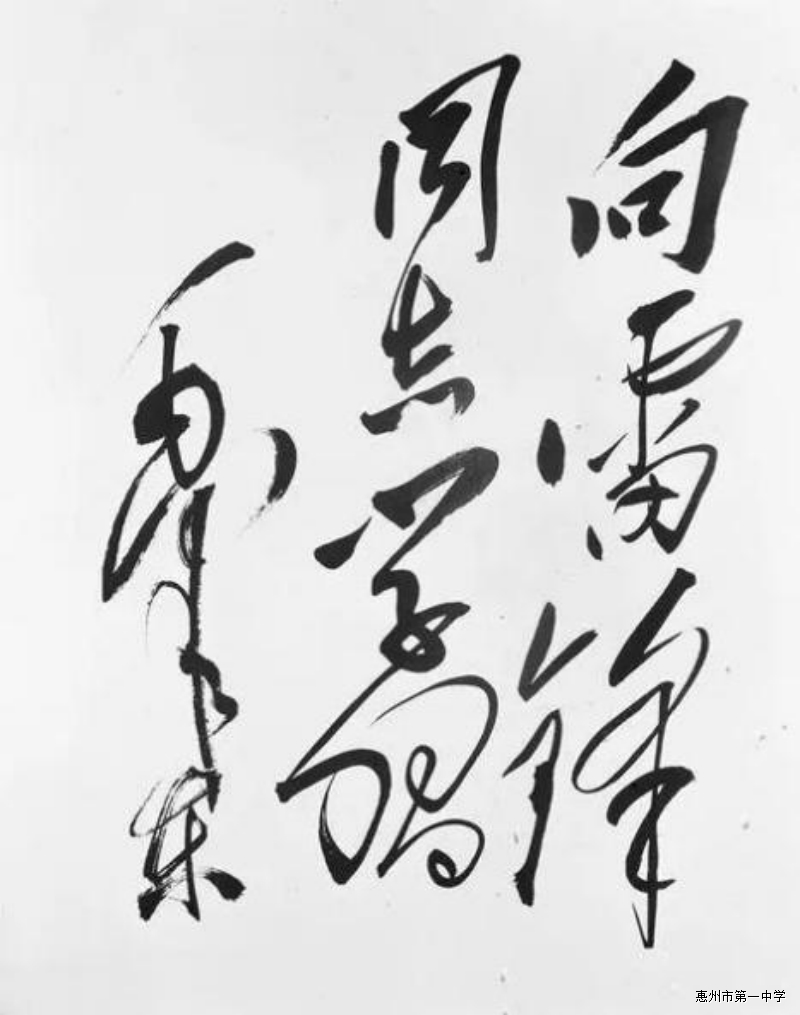 向雷锋
同志学习
毛泽东
惠州市第一中学